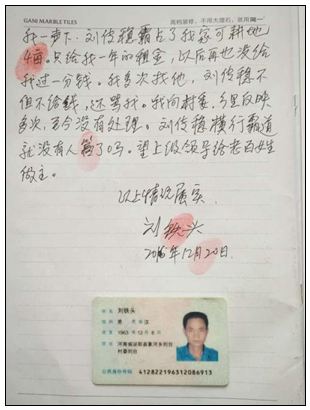 GANI MARBLE TILES
高档装修,不用大理石,就用简一
我一声下:刘传稳霸占了我家可耕地
4亩。只给我一年的租金,以后再也没给
我过一分钱。我多次找他,刘传稳不
但不给钱,还骂我。我向村委、乡里反映
多次,至今没有处理。刘传稳横行霸道
就没有人管了吗。望上级领导给老百姓
做主。
以上情况属实
刘铁头
2016年12月20日.
姓名 刘铁头
性别 男 民族 汉
出生 1963 年 12 月 8 日
住址 河南省泌阳县象河乡刘台
村委刘台
公民身份号码 412822196312086913